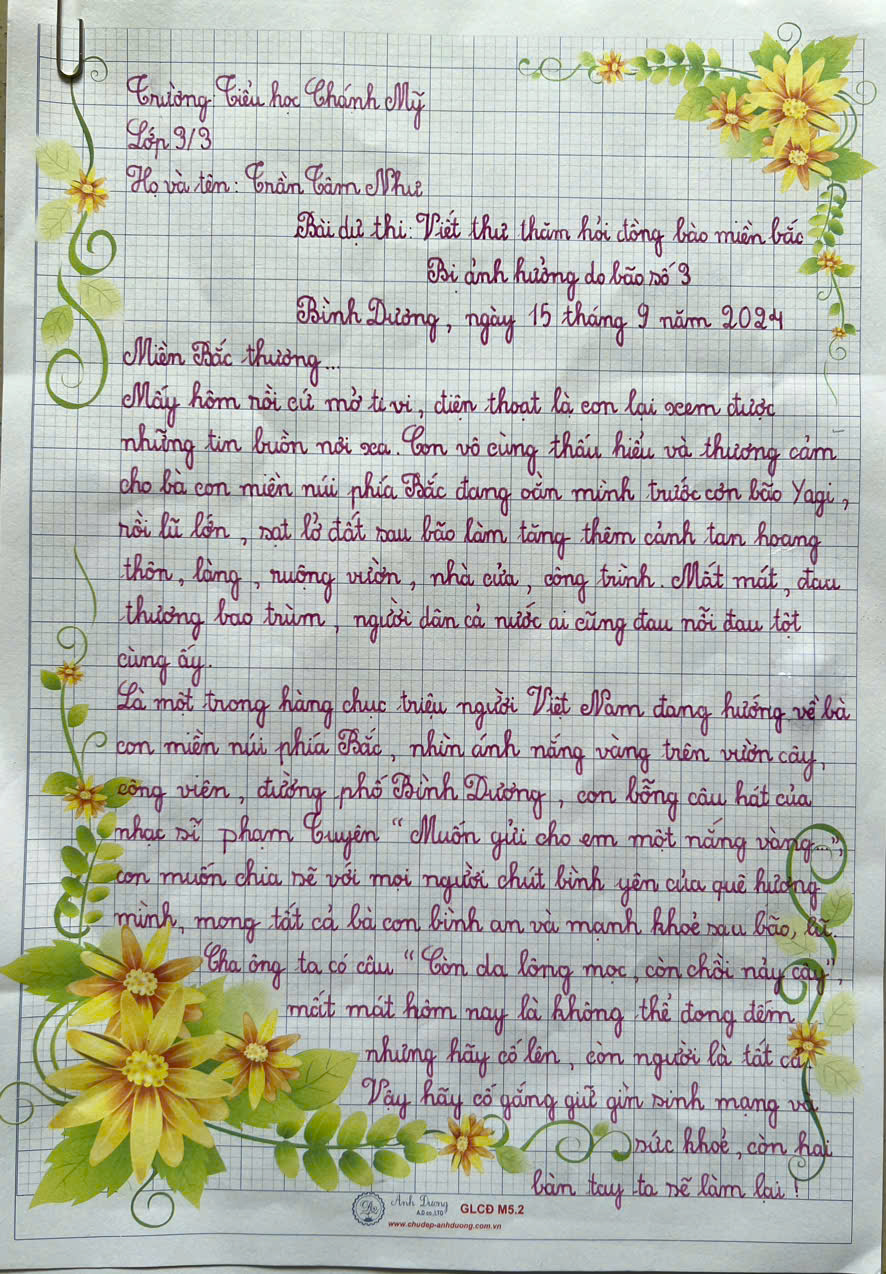 Trường Tiểu học Chánh Mỹ
Lớp 3/3
Họ và tên: Trần Tâm Như
Bài dự thi: Viết thư thăm hỏi đồng bào miền bắc
Bị ảnh hưởng do bão số 3
Bình Dương, ngày 15 tháng 9 năm 2024
Miền Bắc thương...
Mấy hôm rồi cứ mở ti vi, điện thoạt là con lại xem được
những tin buồn nơi xa. Con vô cùng thấu hiểu và thương cảm
cho bà con miền núi phía Bắc đang oằn mình trước cơn bão Yagi,
rồi lũ lớn, sạt lở đất sau bão làm tăng thêm cảnh tan hoang
thôn, làng, ruộng vườn, nhà cửa, công trình. Mất mát, đau
thương bao trùm, người dân cả nước ai cũng đau nỗi đau tột
cùng ấy.
Là một trong hàng chục triệu người Việt Nam đang hướng về bà
con miền núi phía Bắc, nhìn ánh nắng vàng trên vườn cây,
công viên, đường phố Bình Dương, con bỗng câu hát của
nhạc sĩ phạm Tuyên "Muốn gửi cho em một nắng vàng...",
con muốn chia sẽ với mọi người chút bình yên của quê hương
mình, mong tất cả bà con bình an và mạnh khoẻ sau bão, lũ.
Cha ông ta có câu "Còn da lông mọc, còn chồi nảy cây",
mất mát hôm nay là không thể đong đếm
nhưng hãy cố lên, còn người là tất cả.
Vậy hãy cố gắng giữ gìn sinh mạng và
sức khoẻ, còn hai
bàn tay ta sẽ làm lại!
Anh Dương
A.D co.,LTD
GLCĐ M5.2
www.chudep-anhduong.com.vn